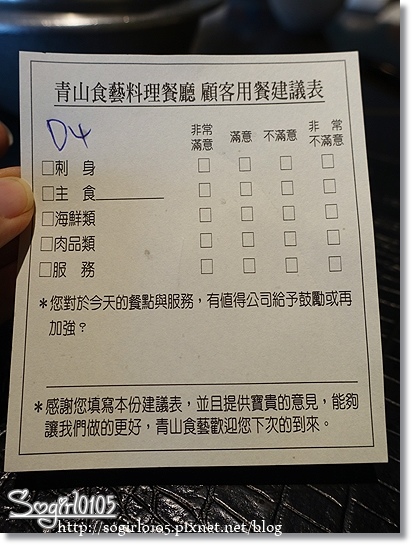 青山食藝料理餐廳 顧客用餐建議表
D4
非常滿意 滿意 不滿意 非常不滿意
□刺 身 □ □ □ □
□主 食________ □ □ □ □
□海鮮類 □ □ □ □
□肉品類 □ □ □ □
□服 務 □ □ □ □
*您對於今天的餐點與服務，有值得公司給予鼓勵或再
加強？
*感謝您填寫本份建議表，並且提供寶貴的意見，能夠
讓我們做的更好，青山食藝歡迎您下次的到來。
Sogirl0105
http://sogirl0105.pixnet.net/blog